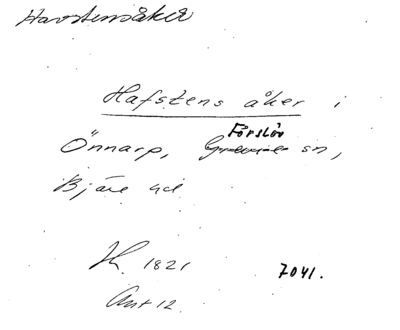 Havstensåker
Hafstens åker i
Förslöv
Önnarp, Grevie sn,
Bjäre hd
H. 1821 7041.
Ant 12